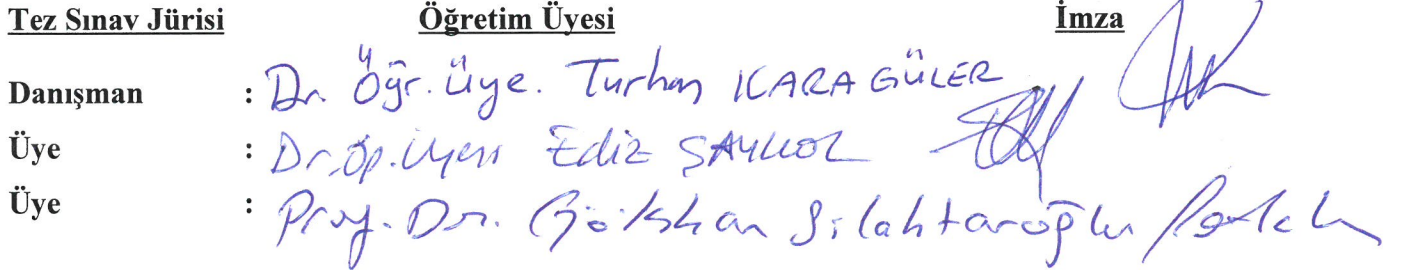 Tez Sınav Jürisi Öğretim Üyesi İmza
Danışman : Dr. Öğr. Üye. Turhan KARAGÜLER
Üye : Dr. Öğ. Üyesi Ediz ŞAYKOL
Üye : Prof. Dr. Gökhan Silahtaroğlu